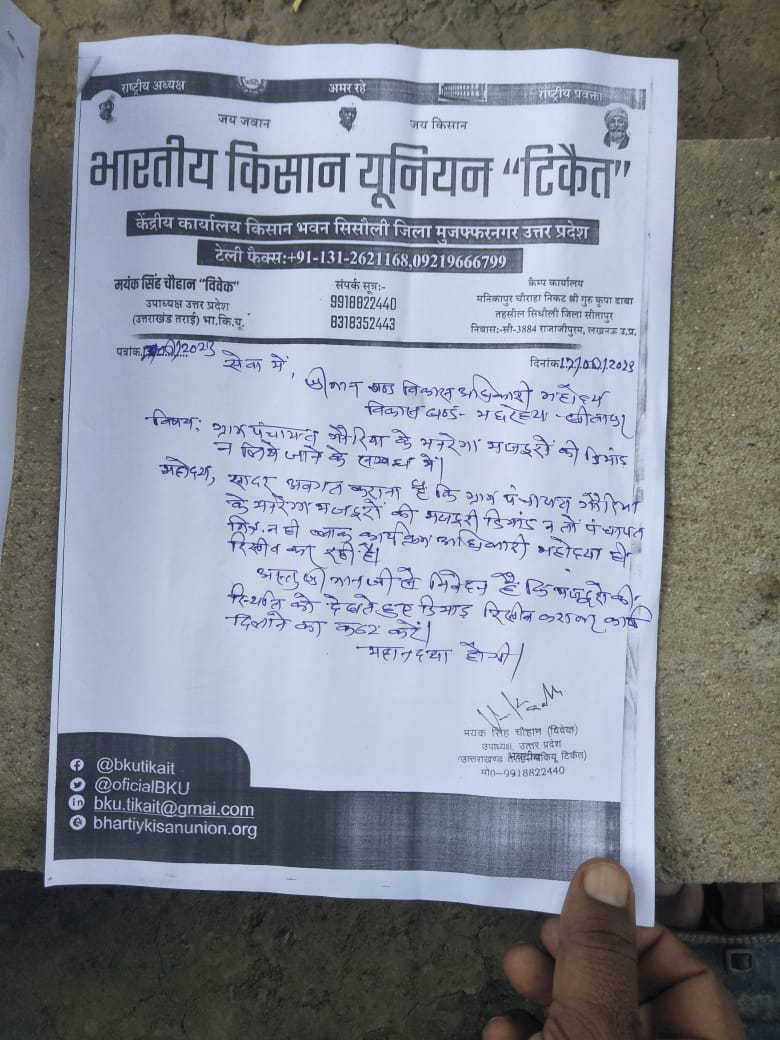 राष्ट्रीय अध्यक्ष अमर रहे राष्ट्रीय प्रवक्ता
जय जवान जय किसान
भारतीय किसान यूनियन “टिकैत”
केंद्रीय कार्यालय किसान भवन सिसौली जिला मुजफ्फरनगर उत्तर प्रदेश
टेली फैक्स:+91-131-2621168,09219666799
मयंक सिंह चौहान “विवेक”
उपाध्यक्ष उत्तर प्रदेश
(उत्तराखंड तराई) भा.कि.यू.
संपर्क सूत्र:-
9918822440
8318352443
कैम्प कार्यालय
मनिकापुर चौराहा निकट श्री गुरु कृपा ढाबा
तहसील सिधौली जिला सीतापुर
निवास:-सी-3884 राजाजीपुरम, लखनऊ उ.प्र.
पत्रांक
दिनांक
सेवा में,
श्रीमान खण्ड विकास अधिकारी महोदय
विकास खण्ड-
विषय: ग्राम पंचायत के मनरेगा मजदूरों की डिमांड
न लिये जाने के सम्बन्ध में।
महोदय, सादर अवगत कराना है कि ग्राम पंचायत
के मनरेगा मजदूरों की मजदूरी डिमांड न तो पंचायत
मित्र न ही ब्लाक कार्यक्रम अधिकारी महोदया ही
रिसीव कर रही है।
अस्तु श्रीमान जी से निवेदन है कि मजदूरों की
स्थिति को देखते हुए डिमांड रिसीव कराकर कार्य
दिलाने का कष्ट करें।
महान दया होगी।
मयंक सिंह चौहान (विवेक)
उपाध्यक्ष, उत्तर प्रदेश
मो०-9918822440
@bkutikait
@oficialBKU
bku.tikait@gmai.com
bhartiykisanunion.org